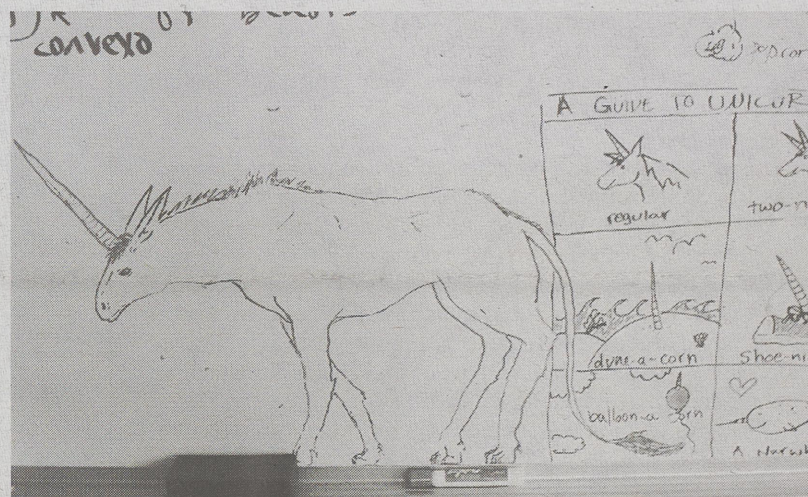 convexo
popcor
A GUIDE TO UNICOR
regular
two-n
dune-a-corn
Shoe-ni
balloon-a-corn
A Narwh